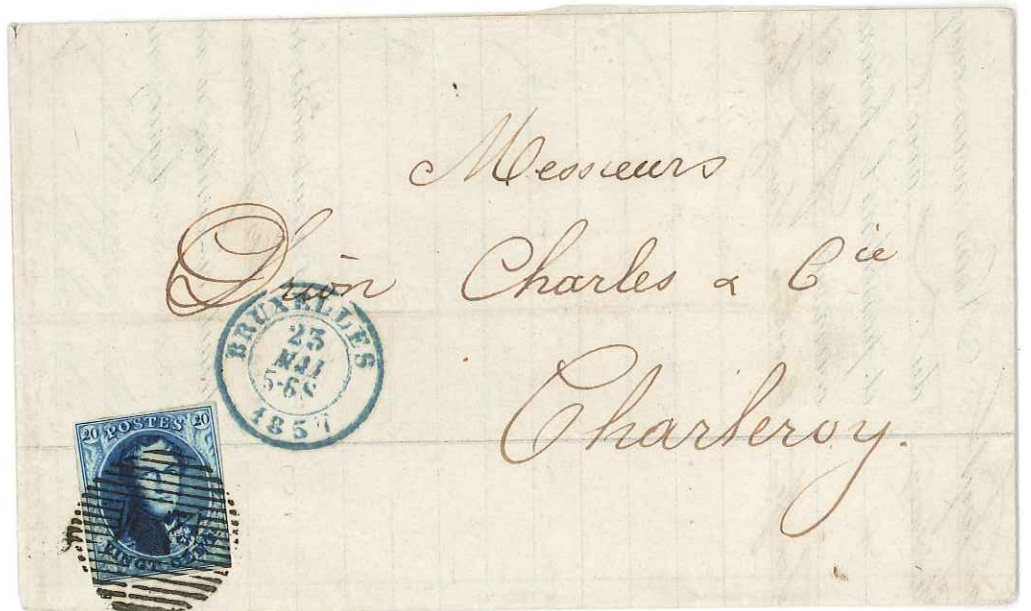 Messieurs
Drion Charles & Cie
Charleroy.
BRUXELLES
23
MAI
5-6S
1857
20 POSTES 20
VINGT CENTS